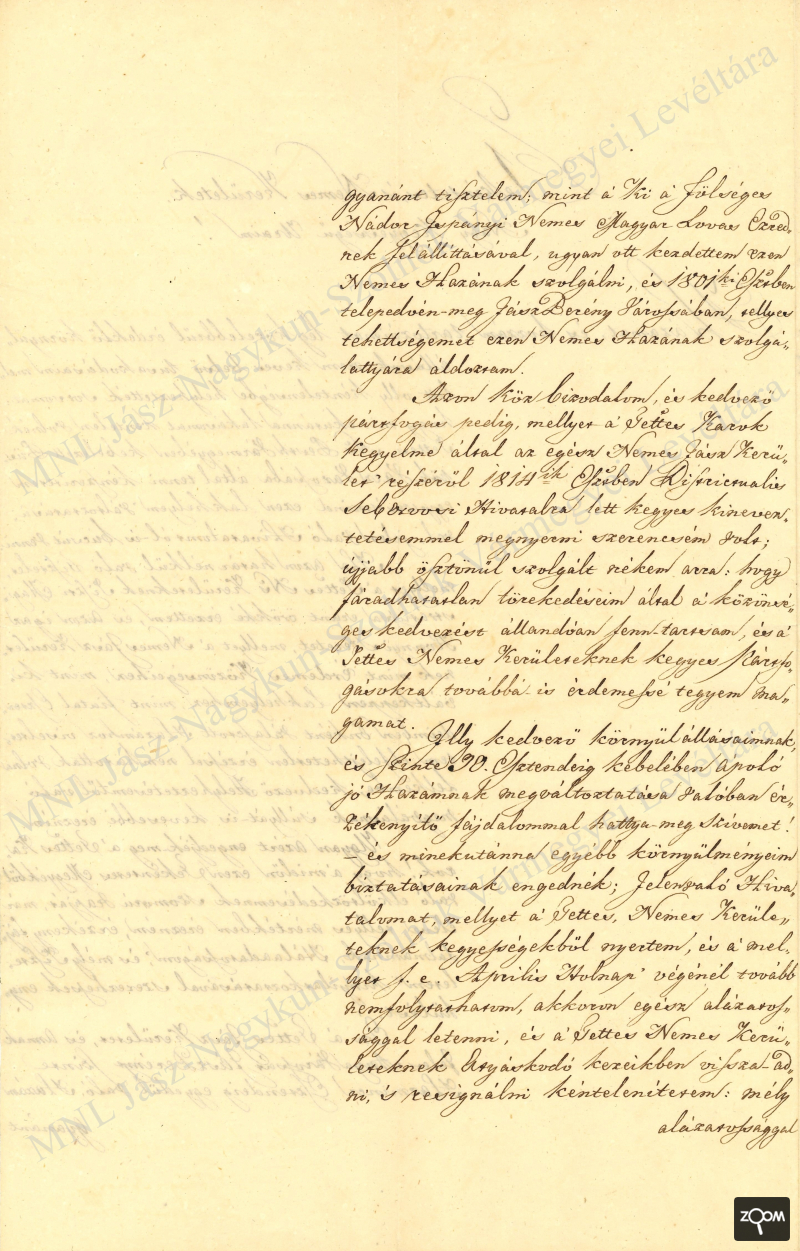 gyanánt tisztelem; mint á Ki á Fölséges
Nádor-Ispányi Nemes Magyar Lovas Ezred„
nek felállíttásával, ugyan ott kezdettem ezen
Nemes Hazának szolgálni, és 1801ki Esztben
telepedvén-meg JászBerény Várossában, tellyes
tehettségemet ezen Nemes Hazának szolgá„
lattyára áldoztam.
Azon köz bizodalom, és kedvező
pártfogás pedig, mellyet á Tettes Karok
kegyelme által az egész Nemes Jász Kerü„
let részéről 1814ik Esztben Districtualis
Seborvosi Hivatalra lett kegyes kineven„
tetésemmel megnyerni szerencsém volt;
újjabb ösztönűl szolgált nékem arra: hogy
fáradhatatlan törekedéseim által á közönsé„
ges kedvezést állandóan fenn-tartsam, és á
Tettes Nemes Kerületeknek kegyes Pártfo„
gásokra továbbá is érdemessé tegyem ma„
gamat.
Illy kedvező környűlállásaimnak,
és szinte 30. Esztendeig kebelében ápoló
jó Hazámnak megváltoztatása valóban ér„
zékenyítő fájdalommal hattya-meg szívemet!
– és minekutánna egyébb környülményeim
biztatásainak engednék; Jelenvaló Hiva„
talomat, mellyet á Tettes, Nemes Kerüle„
teknek kegyességekből nyertem, és á mel„
lyet f. e. Április Holnap' végénél tovább
nemfolytathatom, akkoron egész alázatos„
sággal letenni, és á Tettes Nemes Kerü„
leteknek Atyáskodó kezeikben vissza-ad„
ni, és resignálni kénteleníttetem: mély
alázatossággal
MNL Jász-Nagykun-Szolnok Megyei Levéltára
MNL Jász-Nagykun-Szolnok Megyei Levéltára
MNL Jász-Nagykun-Szolnok Megyei Levéltára
ZOOM